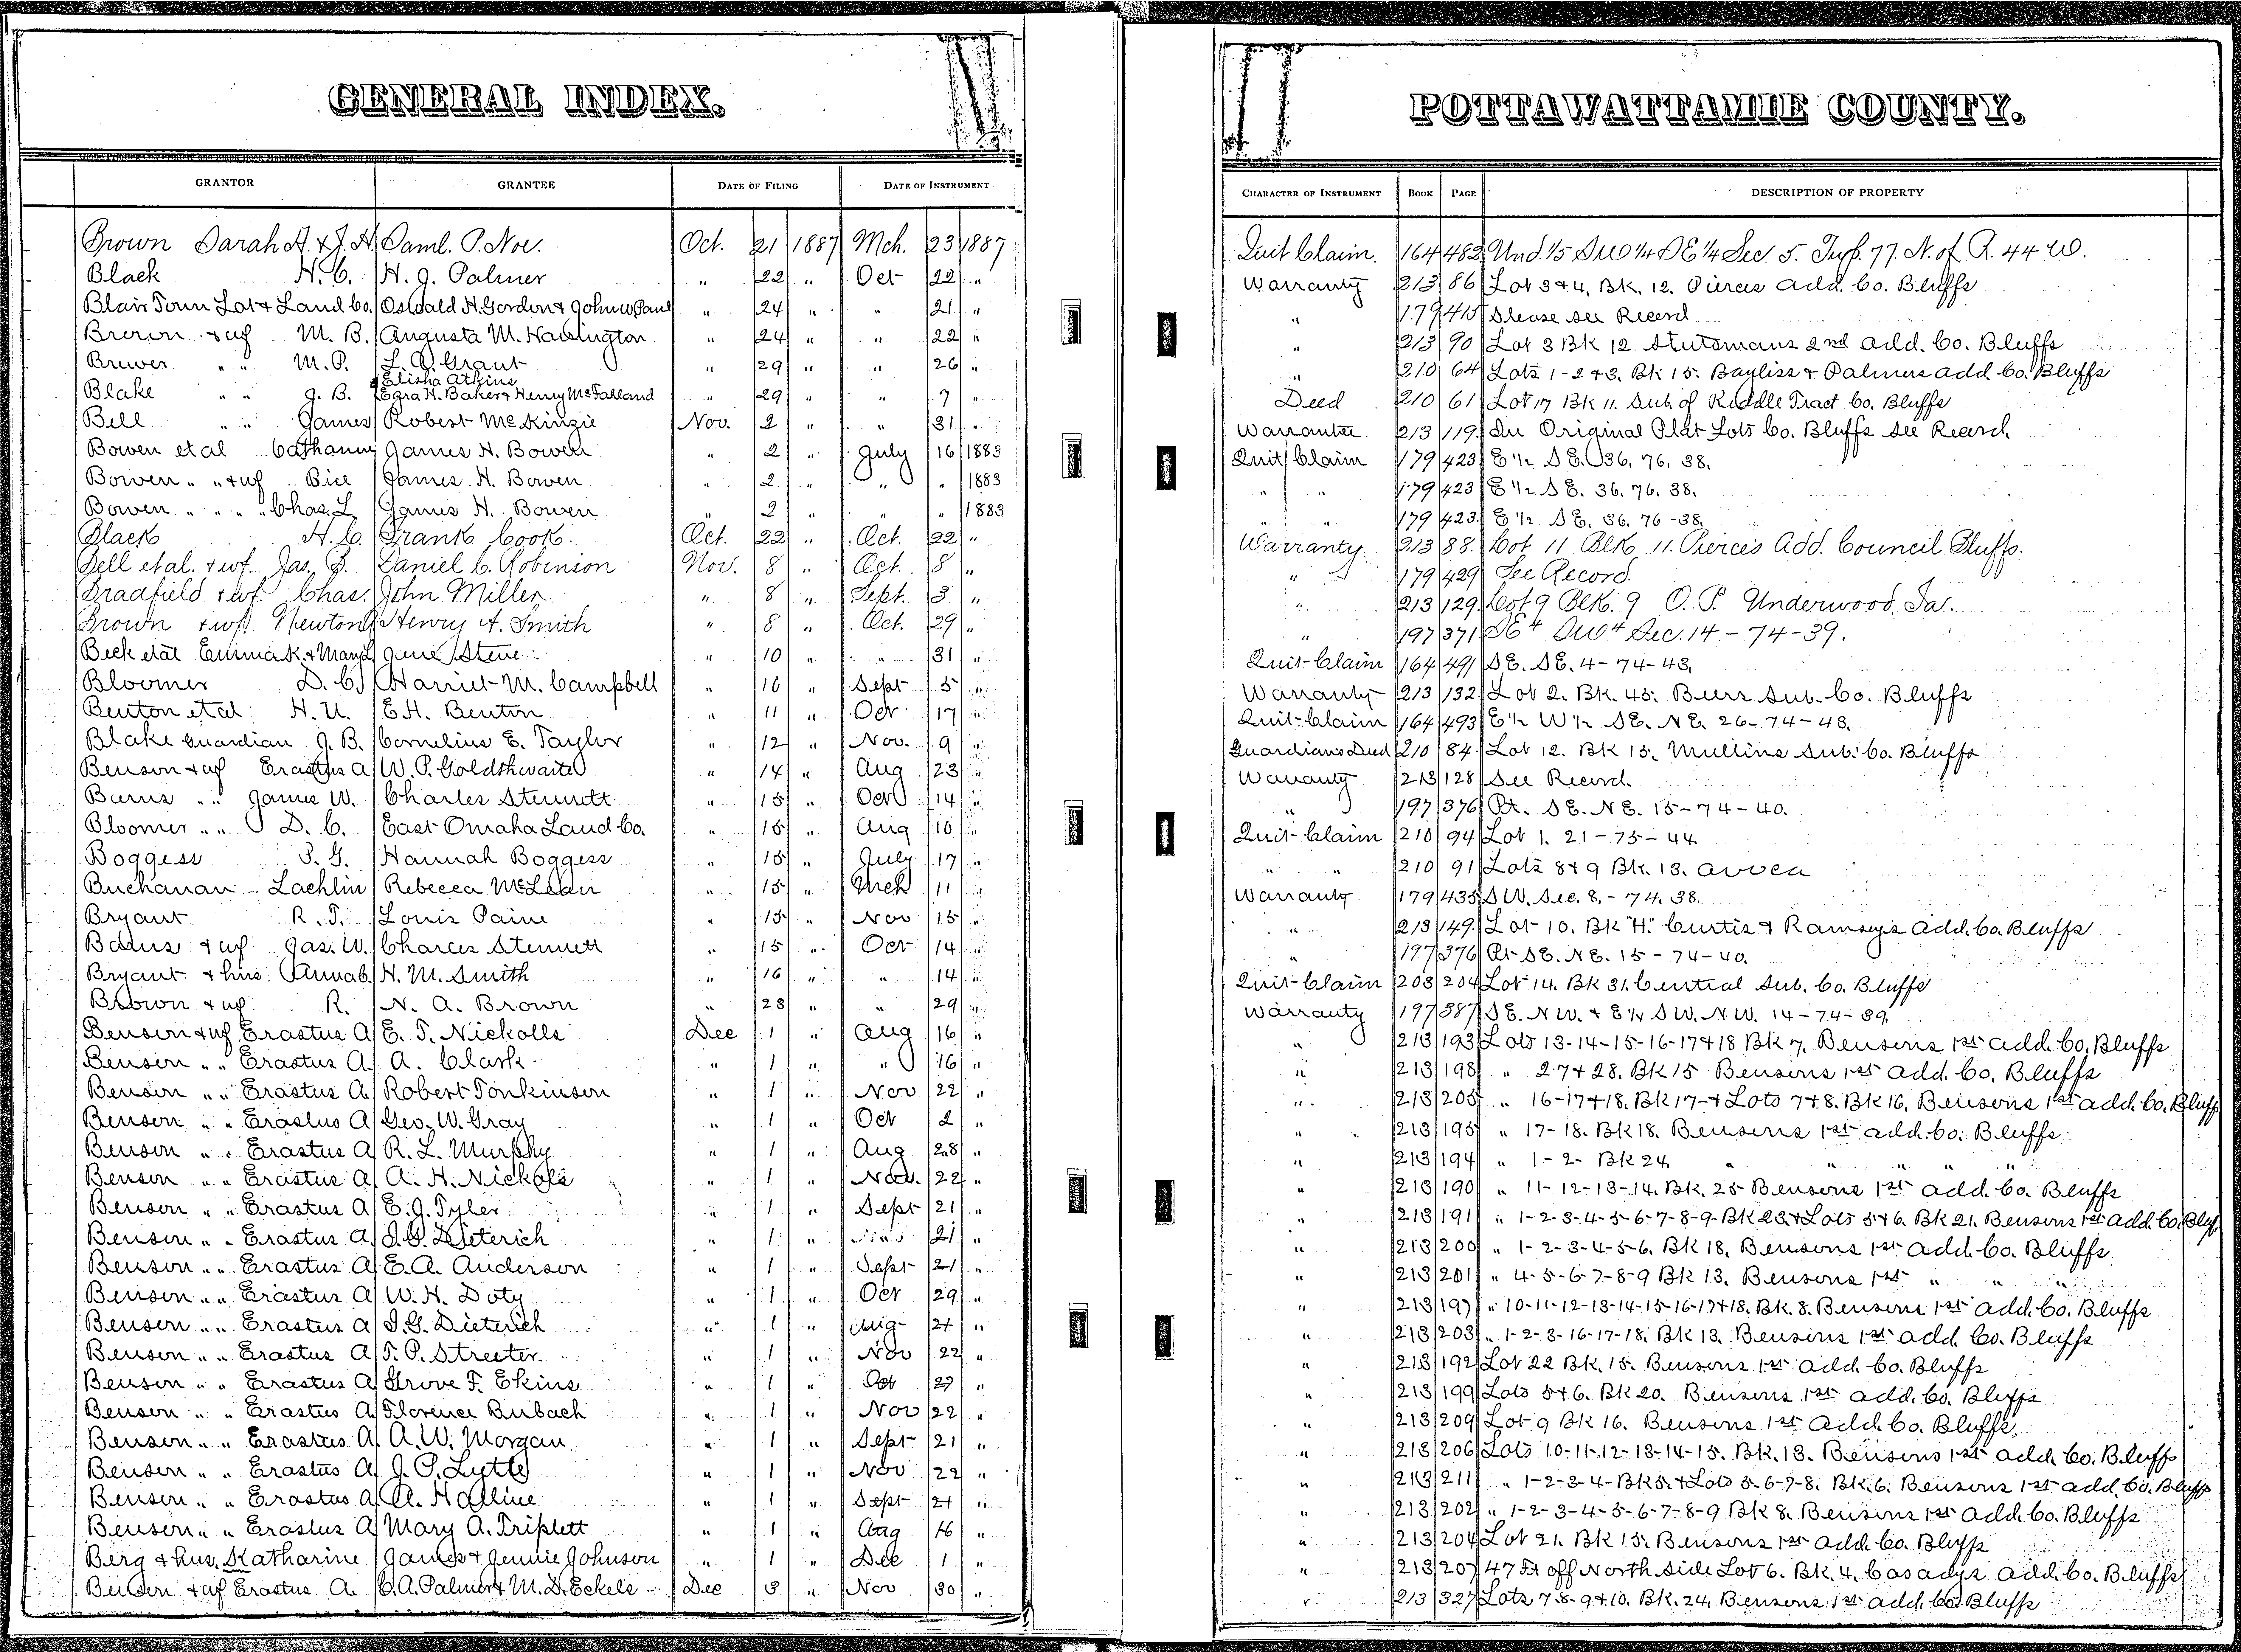 GENERAL INDEX.
GRANTOR GRANTEE DATE OF FILING DATE OF INSTRUMENT
Brown Sarah A. & J. H. Saml. P. Noe. Oct. 21 1887 Mch. 23 1887
Black H. C. H. J. Palmer " 22 " Oct 22 "
Blair Town Lot & Land Co. Oswald H. Gordon & John W Paul " 24 " " 21 "
Brown & wf M. B. Augusta M. " 24 " " 22 "
Brewer " " M. P. L. A. Grant " 29 " " 26 "
& Elisha Atkins
Blake " " J. B. Ezra H. Baker & Henry McFarland " 29 " " 7 "
Bell " " James Robert McKinzie Nov. 2 " " 31 "
Bowen et al James H. Bowen " 2 " July 16 1883
Bowen " " & wf Bice James H. Bowen " 2 " " " 1883
Bowen " " " " Chas. L James H. Bowen " 2 " " " 1883
Black H. C. Frank Cook Oct. 22 " Oct. 22 "
Bell et al. & wf. Jas. B. Daniel C. Robinson Nov. 8 " Oct. 8 "
Bradfield & wf. Chas. John Miller " 8 " Sept. 3 "
Brown & wf Newton Henry A. Smith " 8 " Oct. 29 "
Beck et al Emma K. & Mary L June Stene " 10 " " 31 "
Bloomer D. C. Harriet M. Campbell " 16 " Sept 5 "
Benton et al H. U. E. H. Benton " 11 " Oct 17 "
Blake Guardian J. B. Cornelius E. Taylor " 12 " Nov. 9 "
Benson & wf Erastus A W. P. Goldthwaite " 14 " Aug 23 "
Burns " " James W. Charles Stennett " 15 " Oct 14 "
Bloomer " " D. C. East Omaha Land Co. " 15 " Aug 10 "
Boggess S. G. Hannah Boggess " 15 " July 17 "
Buchanan Lachlin Rebecca McLean " 15 " Mch 11 "
Bryant R. T. Louis Paine " 15 " Nov 15 "
Burns & wf. Jas. W. Charles Stennett " 15 " Oct 14 "
Bryant & hus Anna b. H. M. Smith " 16 " " 14 "
Brown & wf R. N. A. Brown " 23 " " 29 "
Benson & wf Erastus A E. T. Nickolls Dec 1 " Aug 16 "
Benson " " Erastus A. A. Clark " 1 " " 16 "
Benson " " Erastus A. Robert Tonkinson " 1 " Nov 22 "
Benson " " Erastus A Geo. W. Gray " 1 " Oct 2 "
Benson " " Erastus A R. L. Murphy " 1 " Aug 28 "
Benson " " Erastus A A. H. Nickols " 1 " Nov. 22 "
Benson " " Erastus A E. J. Tyler " 1 " Sept 21 "
Benson " " Erastus A J. G. Dieterich " 1 " 21 "
Benson " " Erastus A E. A. Anderson " 1 " Sept 21 "
Benson " " Erastus A W. H. Doty " 1 " Oct 29 "
Benson " " Erastus A J. G. Dieterich " 1 " Aug 21 "
Benson " " Erastus A T. P. Streeter " 1 " Nov 22 "
Benson " " Erastus A Grove F. Ekins " 1 " Oct 29 "
Benson " " Erastus A Florence Bubach " 1 " Nov 22 "
Benson " " Erastus A A. W. Morgan " 1 " Sept 21 "
Benson " " Erastus A J. P. Lytle " 1 " Nov 22 "
Benson " " Erastus A A. Halline " 1 " Sept 21 "
Benson " " Erastus A Mary A. Triplett " 1 " Aug 16 "
Berg & hus. Katharine James & Jennie Johnson " 1 " Dec 1 "
Benson & wf Erastus A. C. A. Palmer & M. D. Eckels Dec 3 " Nov 30 "
POTTAWATTAMIE COUNTY.
CHARACTER OF INSTRUMENT BOOK PAGE DESCRIPTION OF PROPERTY
Quit Claim. 164 482 Und. 1/5 SW 1/4 SE 1/4 Sec. 5. Twp. 77. N. of R. 44 W.
Warranty 213 86 Lot 3 & 4, Bk. 12. Pierces Add. Co. Bluffs
" 179 415 Please see Record
" 213 90 Lot 3 Bk 12 Stutsmans 2nd Add. Co. Bluffs
" 210 64 Lots 1-2 & 3. Bk 15. Bayliss & Palmers add Co. Bluffs
Deed 210 61 Lot 17 Bk 11. Sub. of Riddle Tract Co. Bluffs
Warrantee 213 119 In Original Plat Lots Co. Bluffs see Record
Quit Claim 179 423 E 1/2 SE. 36. 76. 38.
" " 179 423 E 1/2 SE. 36. 76. 38.
" " 179 423 E 1/2 SE. 36. 76-38.
Warranty 213 88. Lot 11 Blk 11. Pierces Add. Council Bluffs.
" 179 429 See Record.
" 213 129 Lot 9 Blk. 9 O. P. Underwood, Ia.
" 197 371 SE4 SW4 Sec. 14-74-39.
Quit-Claim 164 491 SE. SE. 4-74-43.
Warranty 213 132 Lot 2. Bk. 45. Beers Sub. Co. Bluffs
Quit-Claim 164 493 E 1/2 W 1/2 SE. NE. 26-74-43.
Guardians Deed 210 84 Lot 12. Bk 15. Mullins Sub. Co. Bluffs
Warranty 213 128 See Record.
" 197 376 Pt. SE. NE. 15-74-40.
Quit-Claim 210 94 Lot 1. 21-75-44
" " 210 91 Lots 8 & 9 Bk. 13. Avoca
Warranty 179 435 SW. Sec. 8.-74. 38.
" 213 149 Lot 10. Bk "H." Curtis & Ramseys Add. Co. Bluffs
" 197 376 Pt SE. NE. 15-74-40.
Quit-Claim 203 204 Lot 14. Bk 31. Central Sub. Co. Bluffs
Warranty 197 387 SE. NW. & E 1/2 SW. NW. 14-74-39.
" 213 193 Lots 13-14-15-16-17 & 18 Bk 7. Bensons 1st add. Co. Bluffs
" 213 198 " 27 & 28. Bk 15 Bensons 1st Add. Co. Bluffs
" 213 205 " 16-17 & 18. Bk 17-& Lots 7 & 8. Bk 16. Bensons 1st add. Co. Bluff
" 213 195 " 17-18. Bk 18. Bensons 1st add. Co. Bluffs
" 213 194 " 1-2- Bk 24 " " " "
" 213 190 " 11-12-13-14. Bk. 25 Bensons 1st add. Co. Bluffs
" 213 191 " 1-2-3-4-5-6-7-8-9-Bk 23. & Lots 5 & 6. Bk 21. Bensons 1st Add. Co. Bluf.
" 213 200 " 1-2-3-4-5-6. Bk 18. Bensons 1st Add. Co. Bluffs
" 213 201 " 4-5-6-7-8-9 Bk 13. Bensons 1st " " "
" 213 197 " 10-11-12-13-14-15-16-17 & 18. Bk. 8. Bensons 1st Add. Co. Bluffs
" 213 203 " 1-2-3-16-17-18. Bk 13. Bensons 1st add. Co. Bluffs
" 213 192 Lot 22 Bk. 15. Bensons 1st Add. Co. Bluffs
" 213 199 Lots 5 & 6. Bk 20. Bensons 1st add. Co. Bluffs
" 213 209 Lot 9 Bk 16. Bensons 1st Add. Co. Bluffs
" 213 206 Lots 10-11-12-13-14-15. Bk. 13. Bensons 1st add. Co. Bluffs
" 213 211 " 1-2-3-4-Bk 5. & Lots 5-6-7-8. Bk. 6. Bensons 1st add. Co. Bluff
" 213 202 " 1-2-3-4-5-6-7-8-9 Bk 8. Bensons 1st add. Co. Bluffs
" 213 204 Lot 21. Bk 15. Bensons 1st Add. Co. Bluffs
" 213 207 47 Ft off North side Lot 6. Bk. 4. Casadys Add. Co. Bluffs
" 213 327 Lots 7-8-9 & 10. Bk. 24. Bensons 1st add. Co. Bluffs